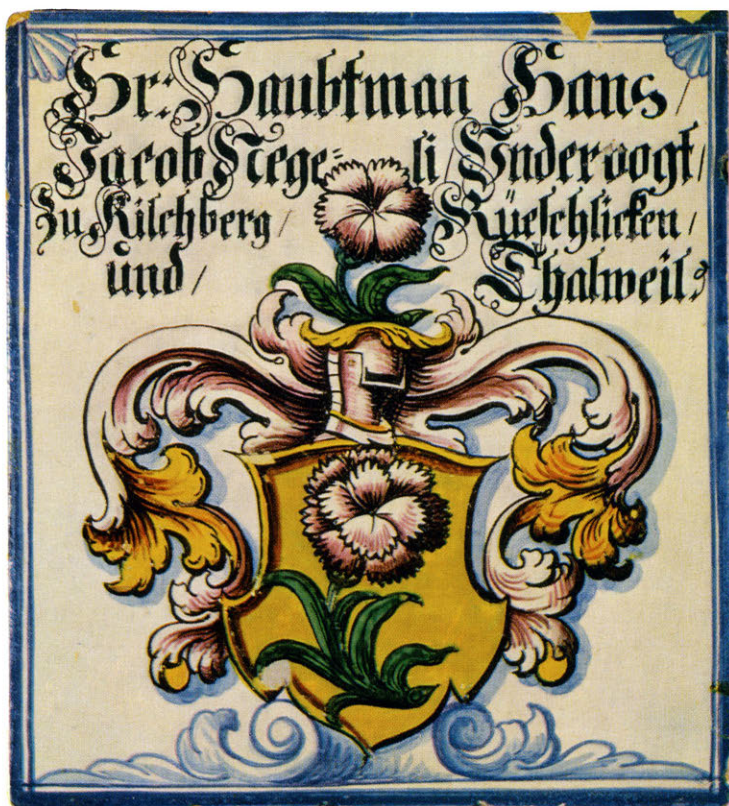 Hr: Haubtman Hans /
Jacob Nege= li / Vndervogt /
Zu Kilchberg / Rüeschlicken /
und / Thalweil.